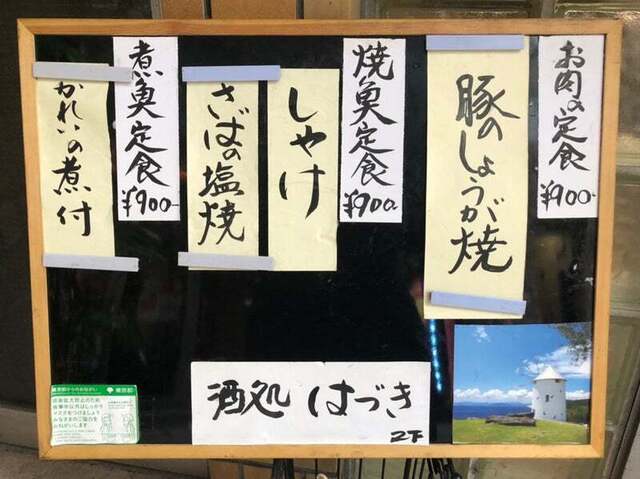 お肉の定食
¥900-
豚のしょうが焼
焼魚定食
¥900-
しゃけ
さばの塩焼
煮魚定食
¥900-
かれいの煮付
酒処 はづき
2F
東京都